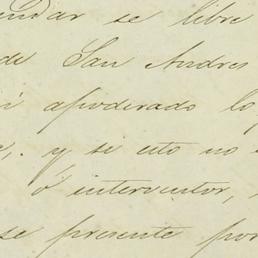 ndar se libre
de San Andres
apoderado lo
y si esto no
ó interventor,
se presente por